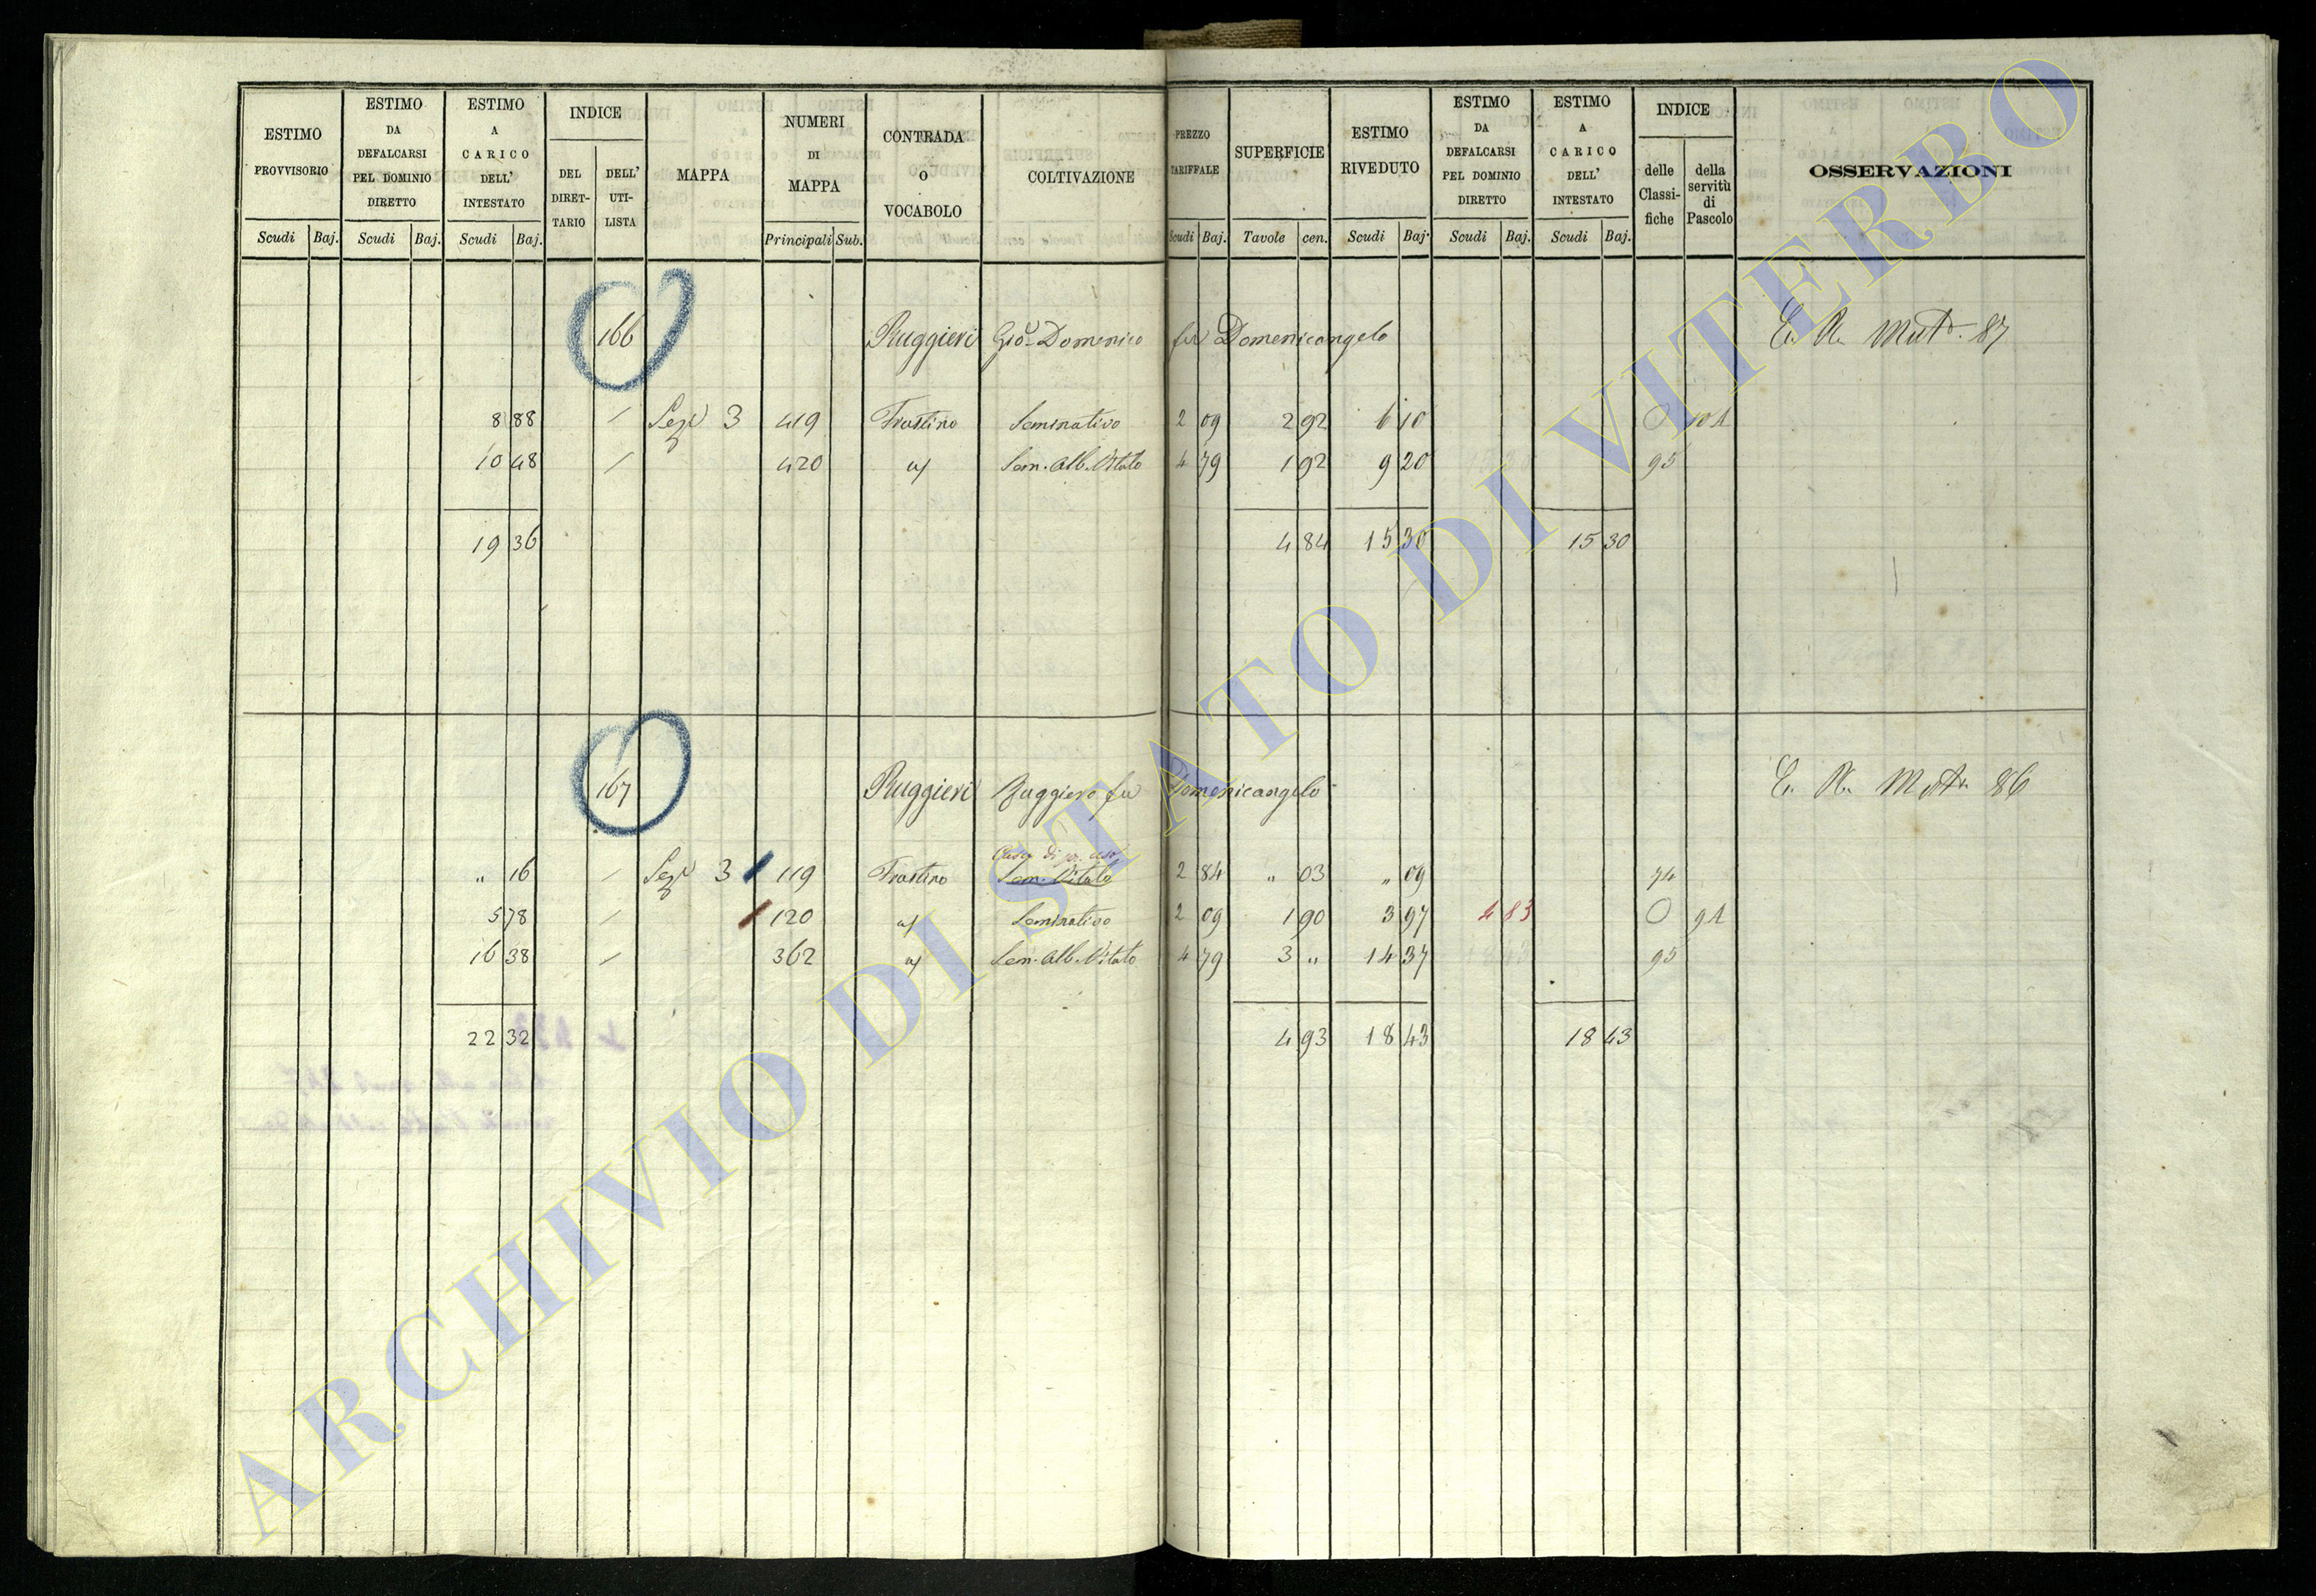 ESTIMO PROVVISORIO
ESTIMO DA DEFALCARSI PEL DOMINIO DIRETTO
ESTIMO A CARICO DELL' INTESTATO
INDICE
DEL DIRET-TARIO
DELL' UTI-LISTA
MAPPA
NUMERI DI MAPPA
CONTRADA O VOCABOLO
COLTIVAZIONE
PREZZO TARIFFALE
SUPERFICIE
ESTIMO RIVEDUTO
ESTIMO DA DEFALCARSI PEL DOMINIO DIRETTO
ESTIMO A CARICO DELL' INTESTATO
INDICE
delle Classi-fiche
della servitù di Pascolo
OSSERVAZIONI
Scudi Baj. Scudi Baj. Scudi Baj. Principali Sub. Scudi Baj. Tavole cen. Scudi Baj. Scudi Baj. Scudi Baj.
166 Ruggieri Gio. Domenico fu Domenicangelo 87
8 88 / Sez. 3 419 Frustino Seminativo 2 09 2 92 6 10
10 48 / 420 Sem. Alb. Vitato 4 79 1 92 9 20 95
19 36 4 84 15 30 15 30
167 Ruggieri Ruggiero fu Domenicangelo 86
Casa di
" 16 / Sez. 3 119 Frustino Sem. Vitato 2 84 " 03 " 09 74
5 78 / 120 Seminativo 2 09 1 90 3 97 4 83
16 38 / 362 Sem. Alb. Vitato 4 79 3 " 14 37 95
22 32 4 93 18 43 18 43
ARCHIVIO DI STATO DI VITERBO